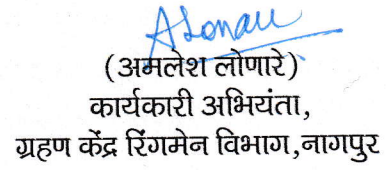 ALonare
(अमलेश लोणारे)
कार्यकारी अभियंता,
ग्रहण केंद्र रिंगमेन विभाग,नागपुर